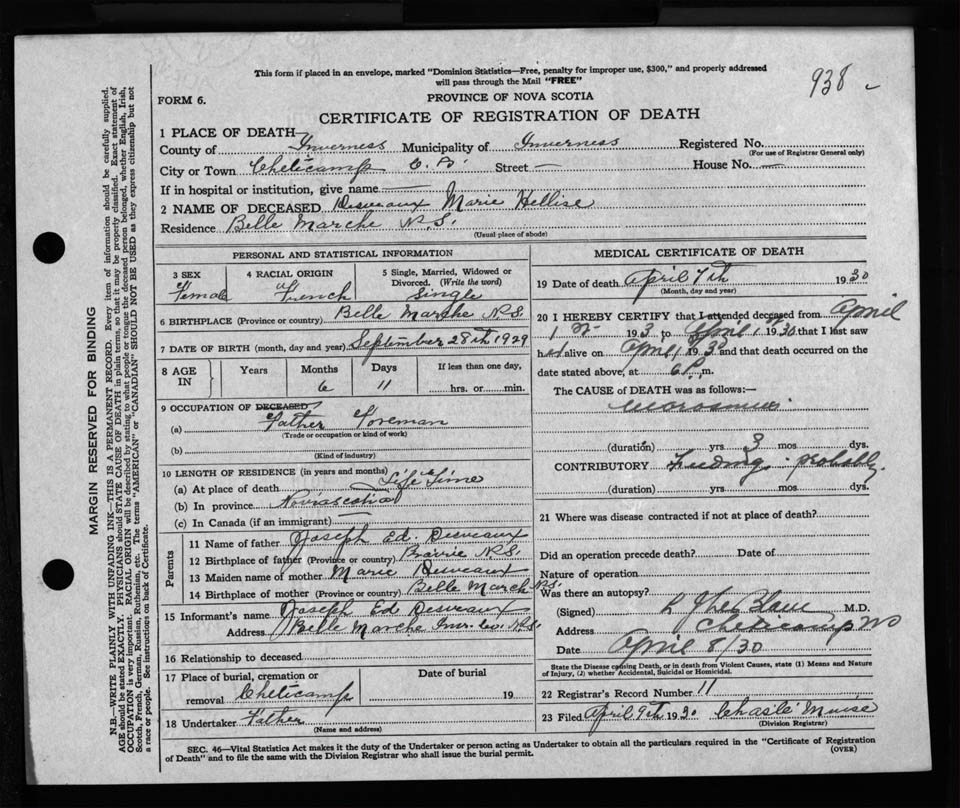 938
This form if placed in an envelope, marked "Dominion Statistics—Free, penalty for improper use, $300," and properly addressed
will pass through the Mail "FREE"
FORM 6.
PROVINCE OF NOVA SCOTIA
CERTIFICATE OF REGISTRATION OF DEATH
1 PLACE OF DEATH
County of Inverness Municipality of Inverness Registered No.
(For use of Registrar General only)
City or Town Cheticamp C. B. Street — House No. —
If in hospital or institution, give name —
2 NAME OF DECEASED Desveaux Marie Hellise
Residence Belle Marche N.S.
(Usual place of abode)
PERSONAL AND STATISTICAL INFORMATION
3 SEX 4 RACIAL ORIGIN 5 Single, Married, Widowed or
Divorced. (Write the word)
Female French Single
6 BIRTHPLACE (Province or country) Belle Marche N.S.
7 DATE OF BIRTH (month, day and year) September 28th 1929
8 AGE IN Years Months Days If less than one day,
6 11 hrs. or min.
9 OCCUPATION OF DECEASED
(a) Father Foreman
(Trade or occupation or kind of work)
(b)
(Kind of industry)
10 LENGTH OF RESIDENCE (in years and months)
(a) At place of death Life Time
(b) In province Novascotia
(c) In Canada (if an immigrant) —
Parents
11 Name of father Joseph Ed. Desveaux
12 Birthplace of father (Province or country) Prairie N.S.
13 Maiden name of mother Marie Desveaux
14 Birthplace of mother (Province or country) Belle March N.S.
15 Informant's name Joseph Ed Desveaux
Address Belle Marche Inv. Co. N.S.
16 Relationship to deceased
17 Place of burial, cremation or
removal Cheticamp 19
18 Undertaker Father
(Name and address)
MEDICAL CERTIFICATE OF DEATH
19 Date of death April 7th 1930
(Month, day and year)
20 I HEREBY CERTIFY that I attended deceased from April
193 to April 1930 that I last saw
h alive on April 1930 and that death occurred on the
date stated above, at 6 P. m.
The CAUSE of DEATH was as follows:—
Marasmus
(duration) yrs 3 mos dys.
CONTRIBUTORY Feeding probably
(duration) yrs. mos. dys.
21 Where was disease contracted if not at place of death?
Did an operation precede death? Date of
Nature of operation
Was there an autopsy?
(Signed) M.D.
Address Cheticamp NS
Date April 8/30
State the Disease causing Death, or in death from Violent Causes, state (1) Means and Nature
of Injury, (2) whether Accidental, Suicidal or Homicidal.
22 Registrar's Record Number 11
23 Filed April 9th 1930
(Division Registrar)
SEC. 46—Vital Statistics Act makes it the duty of the Undertaker or person acting as Undertaker to obtain all the particulars required in the "Certificate of Registration
of Death" and to file the same with the Division Registrar who shall issue the burial permit. (OVER)
MARGIN RESERVED FOR BINDING
N.B.—WRITE PLAINLY WITH UNFADING INK—THIS IS A PERMANENT RECORD. Every item of information should be carefully supplied.
AGE should be stated EXACTLY. PHYSICIANS should STATE CAUSE OF DEATH in plain terms, so that it may be properly classified. Exact statement of
OCCUPATION is very important. RACIAL ORIGIN will be described by stating to what people or tongue the deceased person belonged, whether English, Irish,
Scotch, French, German, Russian, Ruthenian, etc. The terms "AMERICAN" or "CANADIAN" SHOULD NOT BE USED as they express citizenship but not
a race or people. See instructions on back of Certificate.